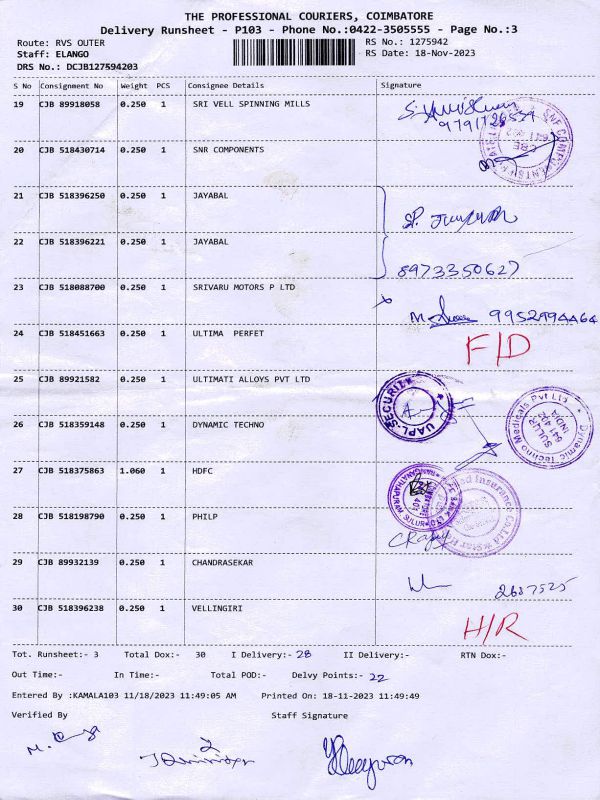 THE PROFESSIONAL COURIERS, COIMBATORE
Delivery Runsheet - P103 - Phone No.:0422-3505555 - Page No.:3
Route: RVS OUTER RS No.: 1275942
Staff: ELANGO RS Date: 18-Nov-2023
DRS No.: DCJB127594203
S No Consignment No Weight PCS Consignee Details Signature
19 CJB 89918058 0.250 1 SRI VELL SPINNING MILLS
20 CJB 518430714 0.250 1 SNR COMPONENTS
21 CJB 518396250 0.250 1 JAYABAL
22 CJB 518396221 0.250 1 JAYABAL
8973350627
23 CJB 518088700 0.250 1 SRIVARU MOTORS P LTD
9952994464
24 CJB 518451663 0.250 1 ULTIMA PERFET F/D
25 CJB 89921582 0.250 1 ULTIMATI ALLOYS PVT LTD
UAPL-SECURITY
Dynamic Techno Medicals Pvt Ltd
SULUR
641 402
INDIA
26 CJB 518359148 0.250 1 DYNAMIC TECHNO
27 CJB 518375863 1.060 1 HDFC
28 CJB 518198790 0.250 1 PHILP
29 CJB 89932139 0.250 1 CHANDRASEKAR
30 CJB 518396238 0.250 1 VELLINGIRI H/R
Tot. Runsheet:- 3 Total Dox:- 30 I Delivery:- 28 II Delivery:- RTN Dox:-
Out Time:- In Time:- Total POD:- Delvy Points:- 22
Entered By :KAMALA103 11/18/2023 11:49:05 AM Printed On: 18-11-2023 11:49:49
Verified By Staff Signature